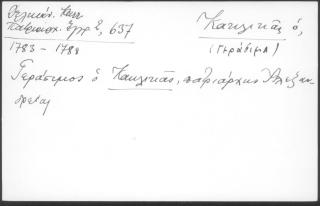 Δελικάν. Κων
Πατριαρχ. Ἔγγρ. Β, 637
1783 - 1788
Κακλικᾶς ὁ,
(Γεράσιμ)
Γεράσιμος ὁ Κακλικᾶς, πατριάρχης Ἀλεξαν-
δρείας